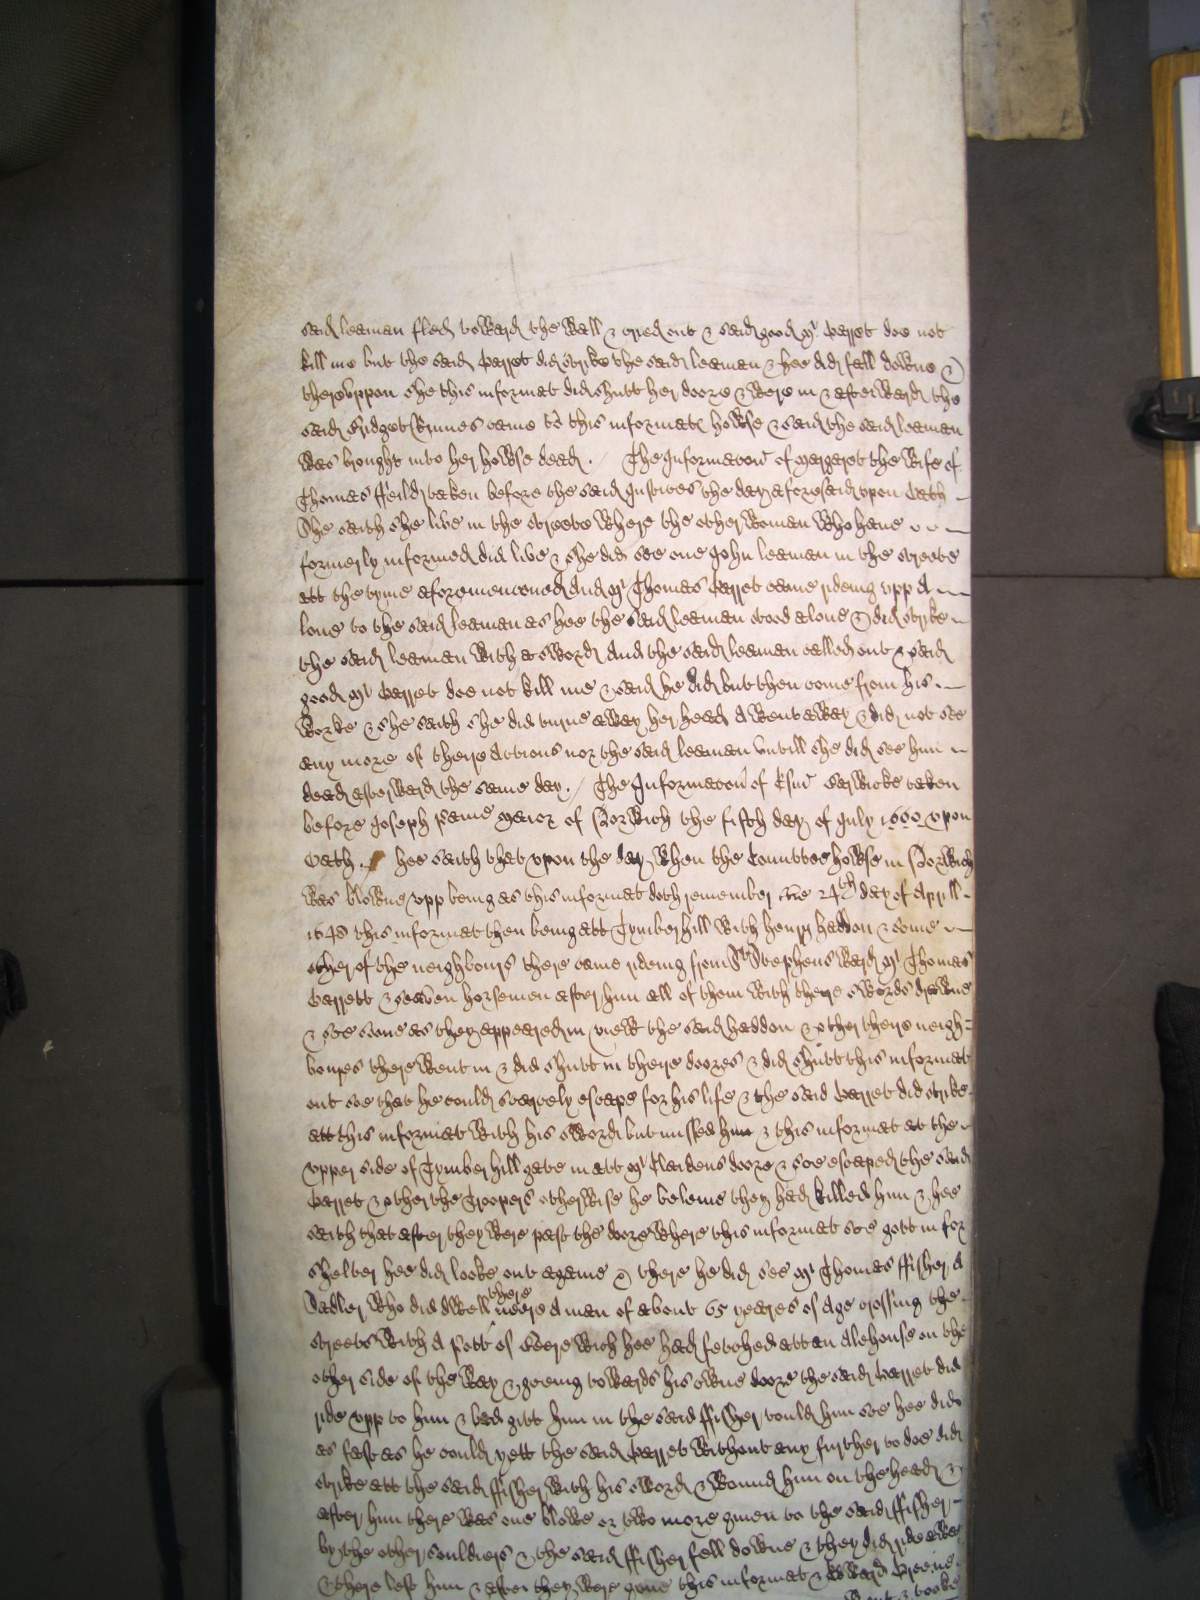 said Leaman fled toward the Wall & cryed out & said good mr Parret doe not
kill me but the said Parret did strike the said Leaman & hee did fall downe &
thereuppon she this informat did shutt her doore & Were in & afterward the
said Bridget came to this informate howse & said the said Leaman
Was brought into her howse dead. / The Informacon of Margaret the Wife of
Thomas ffeild taken before the said Justices the day aforesaid upon oath
She saith she live in the streete Where the other Woman Who have
formerly informed did live & she did see one John Leaman in the streete
att the tyme aforemenconed And mr Thomas Parret came rideing upp A
lone to the said Leaman as hee the said Leaman stood alone & did stryke
the said Leaman With a sword And the said Leaman called out & said
good mr Parret doe not kill me & said he did but then come from his
Worke & she saith she did turne away her head & Went away & did not see
any more of theire actions nor the said Leaman untill she did see him
dead afterward the same day. / The Informacon of taken
before Joseph Paine Maior of Norwich the fifth day of July 1660 upon
oath. / hee saith that upon the day When the Comittee howse in Norwich
Was blowne upp being as this informat doth remember the 24th day of Aprill
1648 this informat then being att Tymberhill With henry haddon & some
other of the neighbours there came rideing from St Stephens Ward mr Thomas
Parrett & seaven horsemen after him all of them With there swords drawne
& soe sone as they appeared in view the said haddon & other there neigh=
boures there Went in & did shutt in there doores & did shutt this informat
out soe that he could scarcely escape for his life & the said Parret did strike
att this informat With his sword but missed him & this informat at the
upper side of Tymberhill gate in att mr doore & soe escaped the said
Parret & other the Troopers otherwise he beleive they had killed him & hee
saith that after they Were past the doore where this informat soe gott in for
shelter hee did looke out againe & there he did see mr Thomas ffisher A
Sadler Who did dwell there neere A man of about 65 yeares of Age crossing the
streete With A pott of beere Wich hee had fetched att an Alehouse on the
other side of the Way & goeing towards his owne doore the said Parret did
ride upp to him & bad gitt him in the said ffisher tould him soe hee did
as fast as he could yett the said Parret Without any further to doe did
strike att the said ffisher With his sword & Wound him on the head &
after him there Was one blowe or two more given to the said ffisher
by the other souldiers & the said ffisher fell downe & they did ride away
& there left him & after they Were gone this informat & Edward
Went & tooke